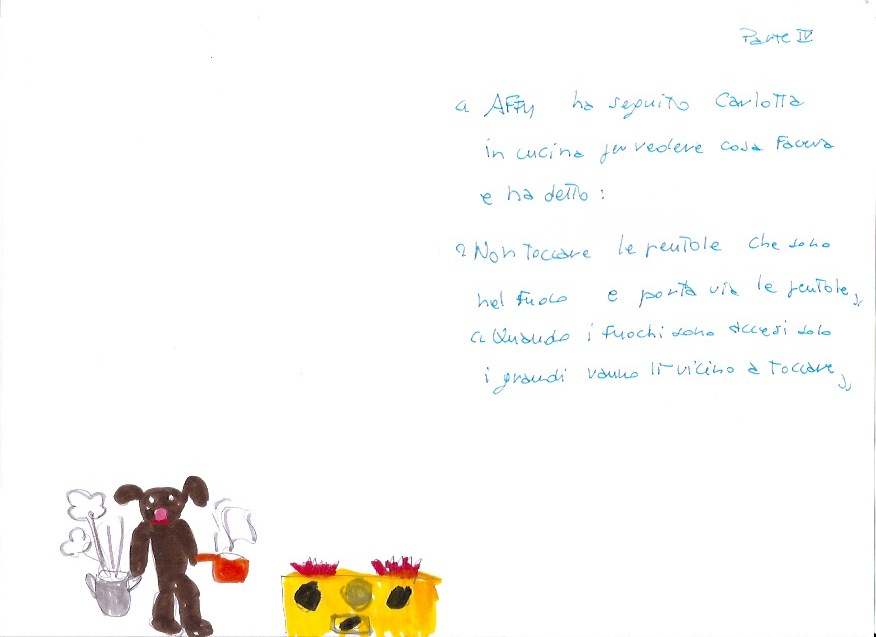 Parte IV
a Affy ha seguito Carlotta
in cucina per vedere cosa faceva
e ha detto:
Non toccare le pentole che sono
nel fuoco e porta via le pentole,,
Quando i fuochi sono accesi solo
i grandi vanno lì vicino a toccare,,